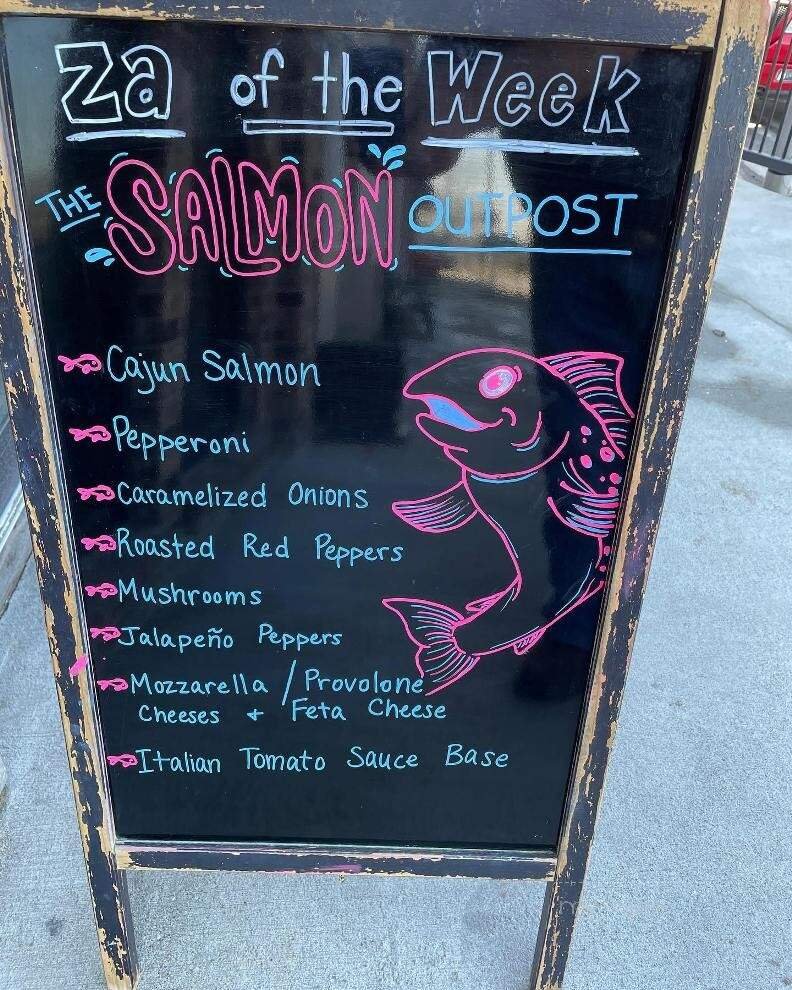 Za of the Week
THE SALMON OUTPOST
Cajun Salmon
Pepperoni
Caramelized Onions
Roasted Red Peppers
Mushrooms
Jalapeño Peppers
Mozzarella / Provolone
Cheeses + Feta Cheese
Italian Tomato Sauce Base